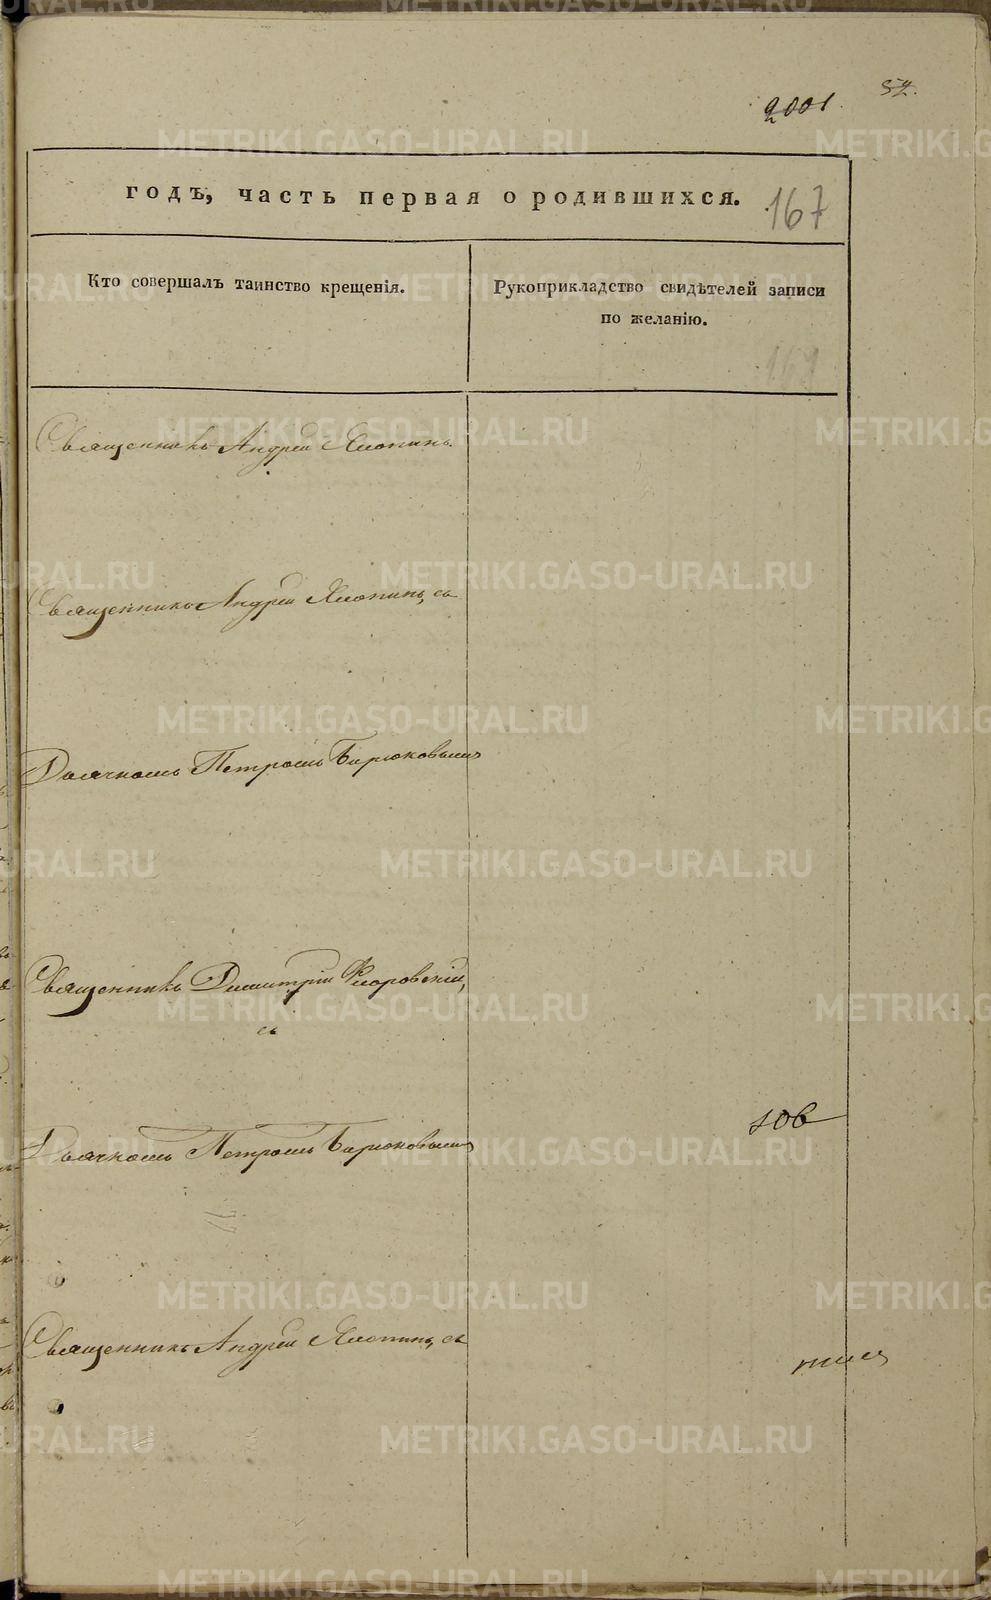 2001. 54.
годъ, часть первая о родившихся. 167
Кто совершалъ таинство крещенія.
Рукоприкладство свидѣтелей записи
по желанію.
169
Священникъ Андрей Хлопинъ.
Священникъ Андрей Хлопинъ, съ
Дьячкомъ Петромъ Бирюковымъ
Священникъ Димитрій Флоровскій,
съ
Дьячкомъ Петромъ Бирюковымъ
Священникъ Андрей Хлопинъ, съ
METRIKI.GASO-URAL.RU